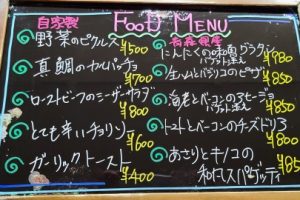 FOOD MENU
自家製
野菜のピクルス
¥500
真鯛のカルパッチョ
¥700
ローストビーフのシーザーサラダ
¥800
とても辛いチョリソー
¥600
ガーリックトースト
¥400
¥980
バゲット添え
生ハムとバジリコのピザ
¥850
海老とベーコンのアヒージョ
バゲット添え
¥850
トマトとベーコンのチーズドリア
¥800
あさりとキノコの
和風スパゲッティ